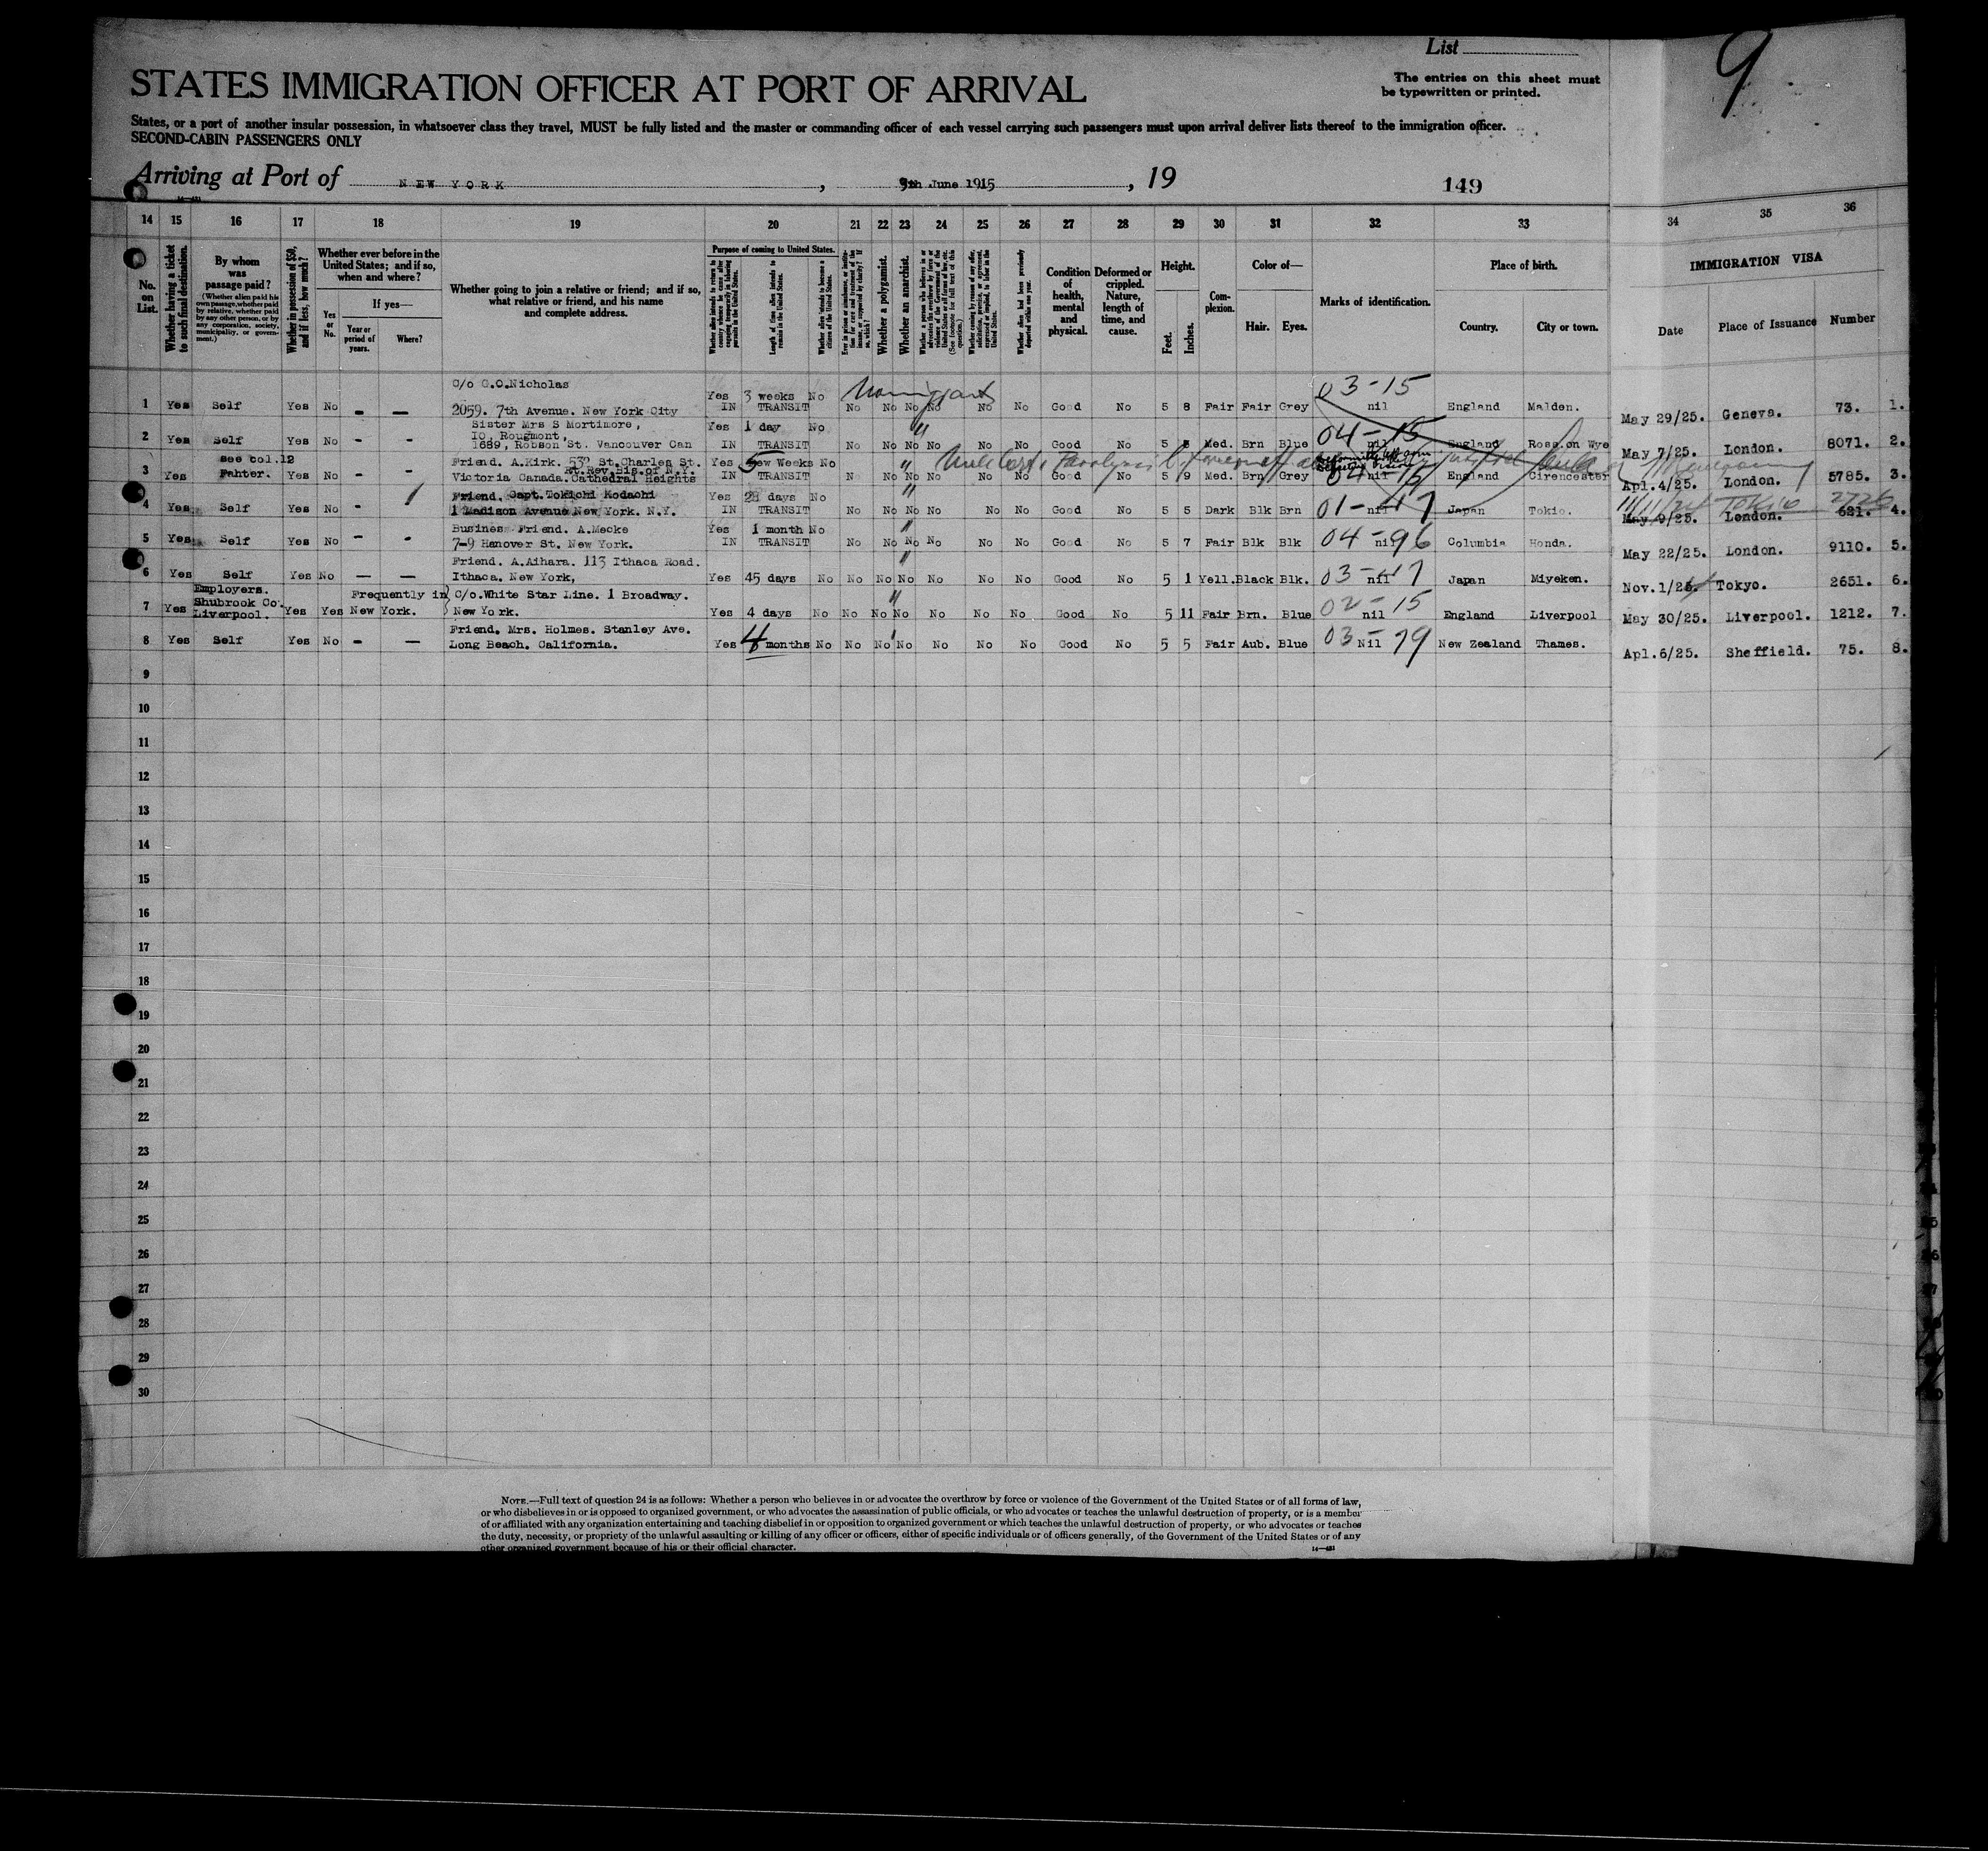 List
9
STATES IMMIGRATION OFFICER AT PORT OF ARRIVAL
The entries on this sheet must
be typewritten or printed.
States, or a port of another insular possession, in whatsoever class they travel, MUST be fully listed and the master or commanding officer of each vessel carrying such passengers must upon arrival deliver lists thereof to the immigration officer.
SECOND-CABIN PASSENGERS ONLY
Arriving at Port of NEW YORK , 9th June 1915 , 19 149
14 15 16 17 18 19 20 21 22 23 24 25 26 27 28 29 30 31 32 33 34 35 36
No. on List.
Whether having a ticket to such final destination.
By whom was passage paid?
(Whether alien paid his own passage, whether paid by relative, whether paid by any other person, or by any corporation, society, municipality, or government.)
Whether in possession of $50, and if less, how much?
Whether ever before in the United States; and if so, when and where?
Yes or No.
If yes—
Year or period of years.
Where?
Whether going to join a relative or friend; and if so, what relative or friend, and his name and complete address.
Purpose of coming to United States.
Whether alien intends to return to country whence he came after engaging temporarily in laboring pursuits in the United States.
Length of time alien intends to remain in the United States.
Whether alien intends to become a citizen of the United States.
Whether a polygamist.
Whether an anarchist.
Condition of health, mental and physical.
Deformed or crippled. Nature, length of time, and cause.
Height.
Feet.
Inches.
Complexion.
Color of—
Hair.
Eyes.
Marks of identification.
Place of birth.
Country.
City or town.
IMMIGRATION VISA
Date
Place of Issuance
Number
C/o G.O.Nicholas
1 Yes Self Yes No - — 2059. 7th Avenue. New York City Yes 3 weeks No IN TRANSIT No No No No No No Good No 5 8 Fair Fair Grey 03-15 nil England Malden. May 29/25. Geneva. 73. 1.
Sister Mrs S Mortimore,
10, Rougmont,
2 Yes Self Yes No - - 1689, Robson St. Vancouver Can Yes 1 day No IN TRANSIT " No No No No No No Good No 5 5 Med. Brn Blue 04-15 nil England Ross.on Wye May 7/25. London. 8071. 2.
see col.12 Friend. A.Kirk. 532 St.Charles St.
Rt.Rev.Bis.of N.Y.
3 Yes Fahter. Yes No - - Victoria Canada. Cathedral Heights Yes 5 Weeks No IN TRANSIT " N No No No No No Good No 5 9 Med. Brn Grey 04-15 nil England Cirencester Apl.4/25. London. 5785. 3.
Friend. Capt. Tokichi Kodachi
4 Yes Self Yes No - 1 Madison Avenue New York. N.Y. Yes 28 days No IN TRANSIT " No No No No No No Good No 5 5 Dark Blk Brn 01-47 nil Japan Tokio. 11/11/24 Tokio 2726 May 9/25. London. 621. 4.
Busines Friend. A.Mecke
5 Yes Self Yes No - - 7-9 Hanover St. New York. Yes 1 month No IN TRANSIT " No No No No No No Good No 5 7 Fair Blk Blk 04-96 nil Columbia Honda. May 22/25. London. 9110. 5.
Friend. A.Aihara. 113 Ithaca Road.
6 Yes Self Yes No — — Ithaca. New York, Yes 45 days No " No No No No No No Good No 5 1 Yell. Black Blk. 03-47 nil Japan Miyeken. Nov.1/24 Tokyo. 2651. 6.
Employers. Frequently in C/o.White Star Line. 1 Broadway.
7 Yes Shubrook Co. Liverpool. Yes Yes New York. New York. Yes 4 days No " No No No No No No Good No 5 11 Fair Brn. Blue 02-15 nil England Liverpool May 30/25. Liverpool. 1212. 7.
Friend. Mrs. Holmes. Stanley Ave.
8 Yes Self Yes No - — Long Beach. California. Yes 4 months No No No No No No No Good No 5 5 Fair Aub. Blue 03-79 Nil New Zealand Thames. Apl.6/25. Sheffield. 75. 8.
9
10
11
12
13
14
15
16
17
18
19
20
21
22
23
24
25
26
27
28
29
30
NOTE.—Full text of question 24 is as follows: Whether a person who believes in or advocates the overthrow by force or violence of the Government of the United States or of all forms of law,
or who disbelieves in or is opposed to organized government, or who advocates the assassination of public officials, or who advocates or teaches the unlawful destruction of property, or is a member
of or affiliated with any organization entertaining and teaching disbelief in or opposition to organized government or which teaches the unlawful destruction of property, or who advocates or teaches
the duty, necessity, or propriety of the unlawful assaulting or killing of any officer or officers, either of specific individuals or of officers generally, of the Government of the United States or of any
other organized government because of his or their official character.
14—481